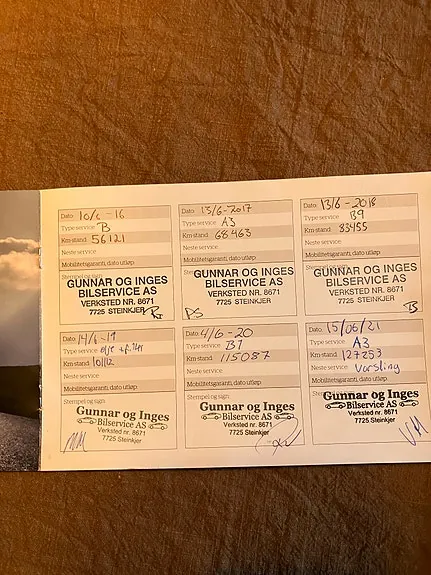 Dato: 10/6-16
Type service: B
Km-stand: 56121
Neste service:
Mobilitetsgaranti, dato utløp:
Stempel og sign:
GUNNAR OG INGES
BILSERVICE AS
VERKSTED NR. 8671
7725 STEINKJER
Dato: 13/6-2017
Type service: A3
Km-stand: 68463
Neste service:
Mobilitetsgaranti, dato utløp:
Stempel og sign:
GUNNAR OG INGES
BILSERVICE AS
VERKSTED NR. 8671
7725 STEINKJER
Dato: 13/6-2018
Type service: B9
Km-stand: 83455
Neste service:
Mobilitetsgaranti, dato utløp:
GUNNAR OG INGES
BILSERVICE AS
VERKSTED NR. 8671
7725 STEINKJER
Dato: 14/6-19
Type service:
Km-stand: 101112
Neste service:
Mobilitetsgaranti, dato utløp:
Stempel og sign:
Gunnar og Inges
Bilservice AS
Verksted nr. 8671
7725 Steinkjer
Dato: 4/6-20
Type service: B1
Km-stand: 115087
Neste service:
Mobilitetsgaranti, dato utløp:
Stempel og sign:
Gunnar og Inges
Bilservice AS
Verksted nr. 8671
7725 Steinkjer
Dato: 15/06/21
Type service: A3
Km-stand: 127253
Neste service: Varsling
Mobilitetsgaranti, dato utløp:
Stempel og sign:
Gunnar og Inges
Bilservice AS
Verksted nr. 8671
7725 Steinkjer